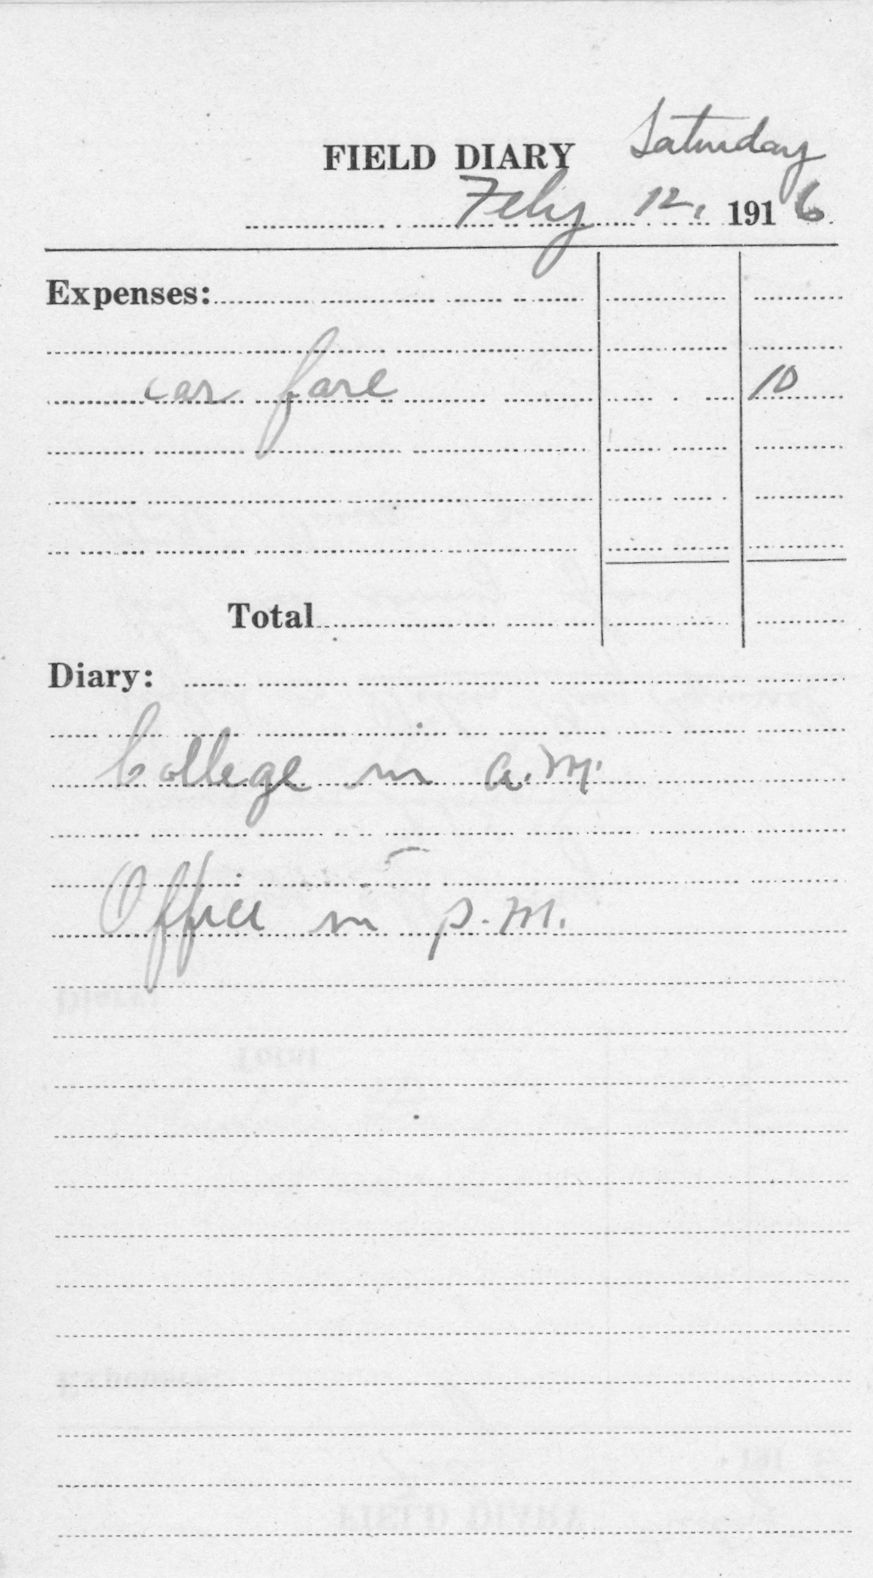 FIELD DIARY Saturday
Feby 12, 1916
Expenses:
car fare 10
Total
Diary:
College in a.m.
Office in p.m.